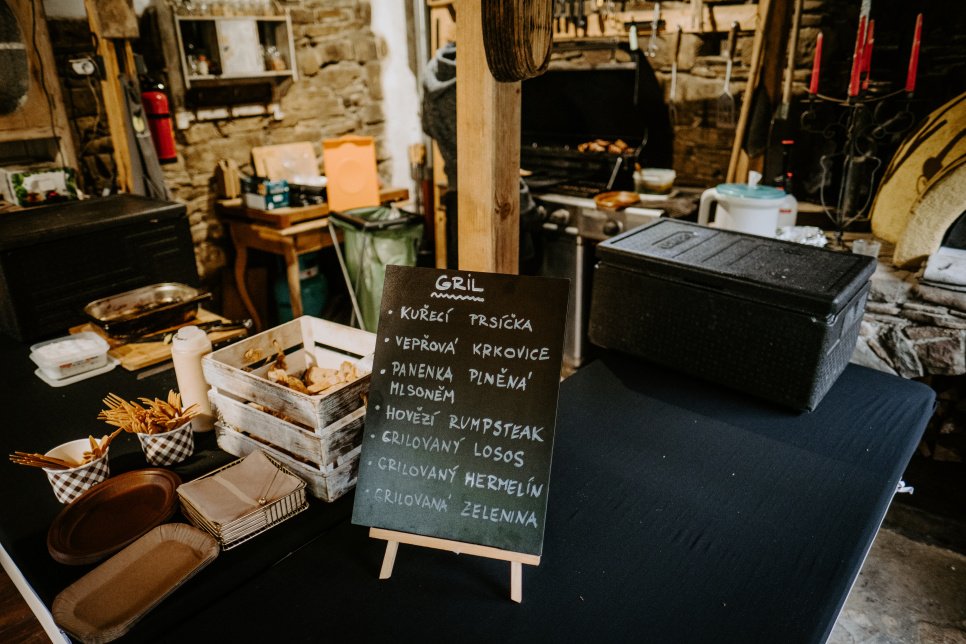 GRIL
• KUŘECÍ PRSÍČKA
• VEPŘOVÁ KRKOVICE
• PANENKA PLNĚNÁ
MLSONĚM
• HOVĚZÍ RUMPSTEAK
• GRILOVANÝ LOSOS
• GRILOVANÝ HERMELÍN
• GRILOVANÁ ZELENINA